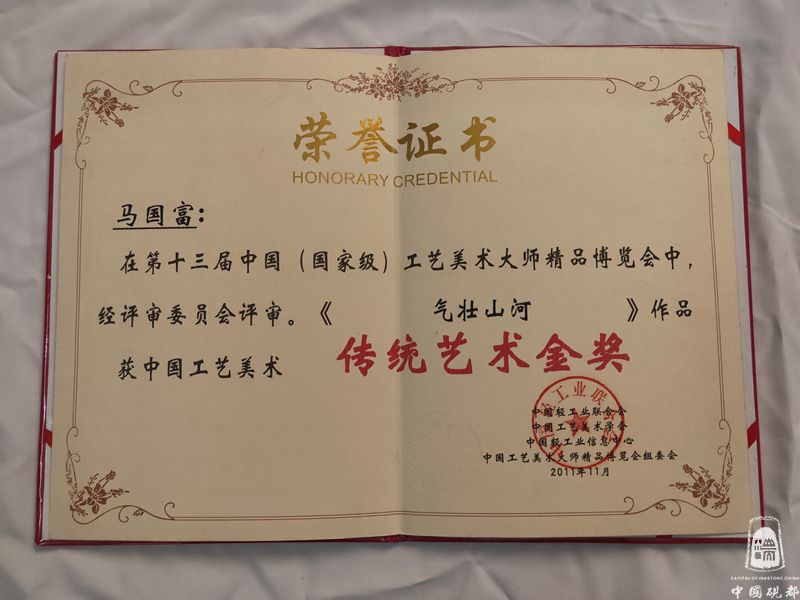 荣誉证书
HONORARY CREDENTIAL
马国富：
在第十三届中国（国家级）工艺美术大师精品博览会中，
经评审委员会评审。《 气壮山河 》作品
获中国工艺美术 传统艺术金奖
中国轻工业联合会
中国工艺美术学会
中国轻工业信息中心
中国工艺美术大师精品博览会组委会
2011年11月
CAPITAL OF INKSTONE,CHINA
中國硯都